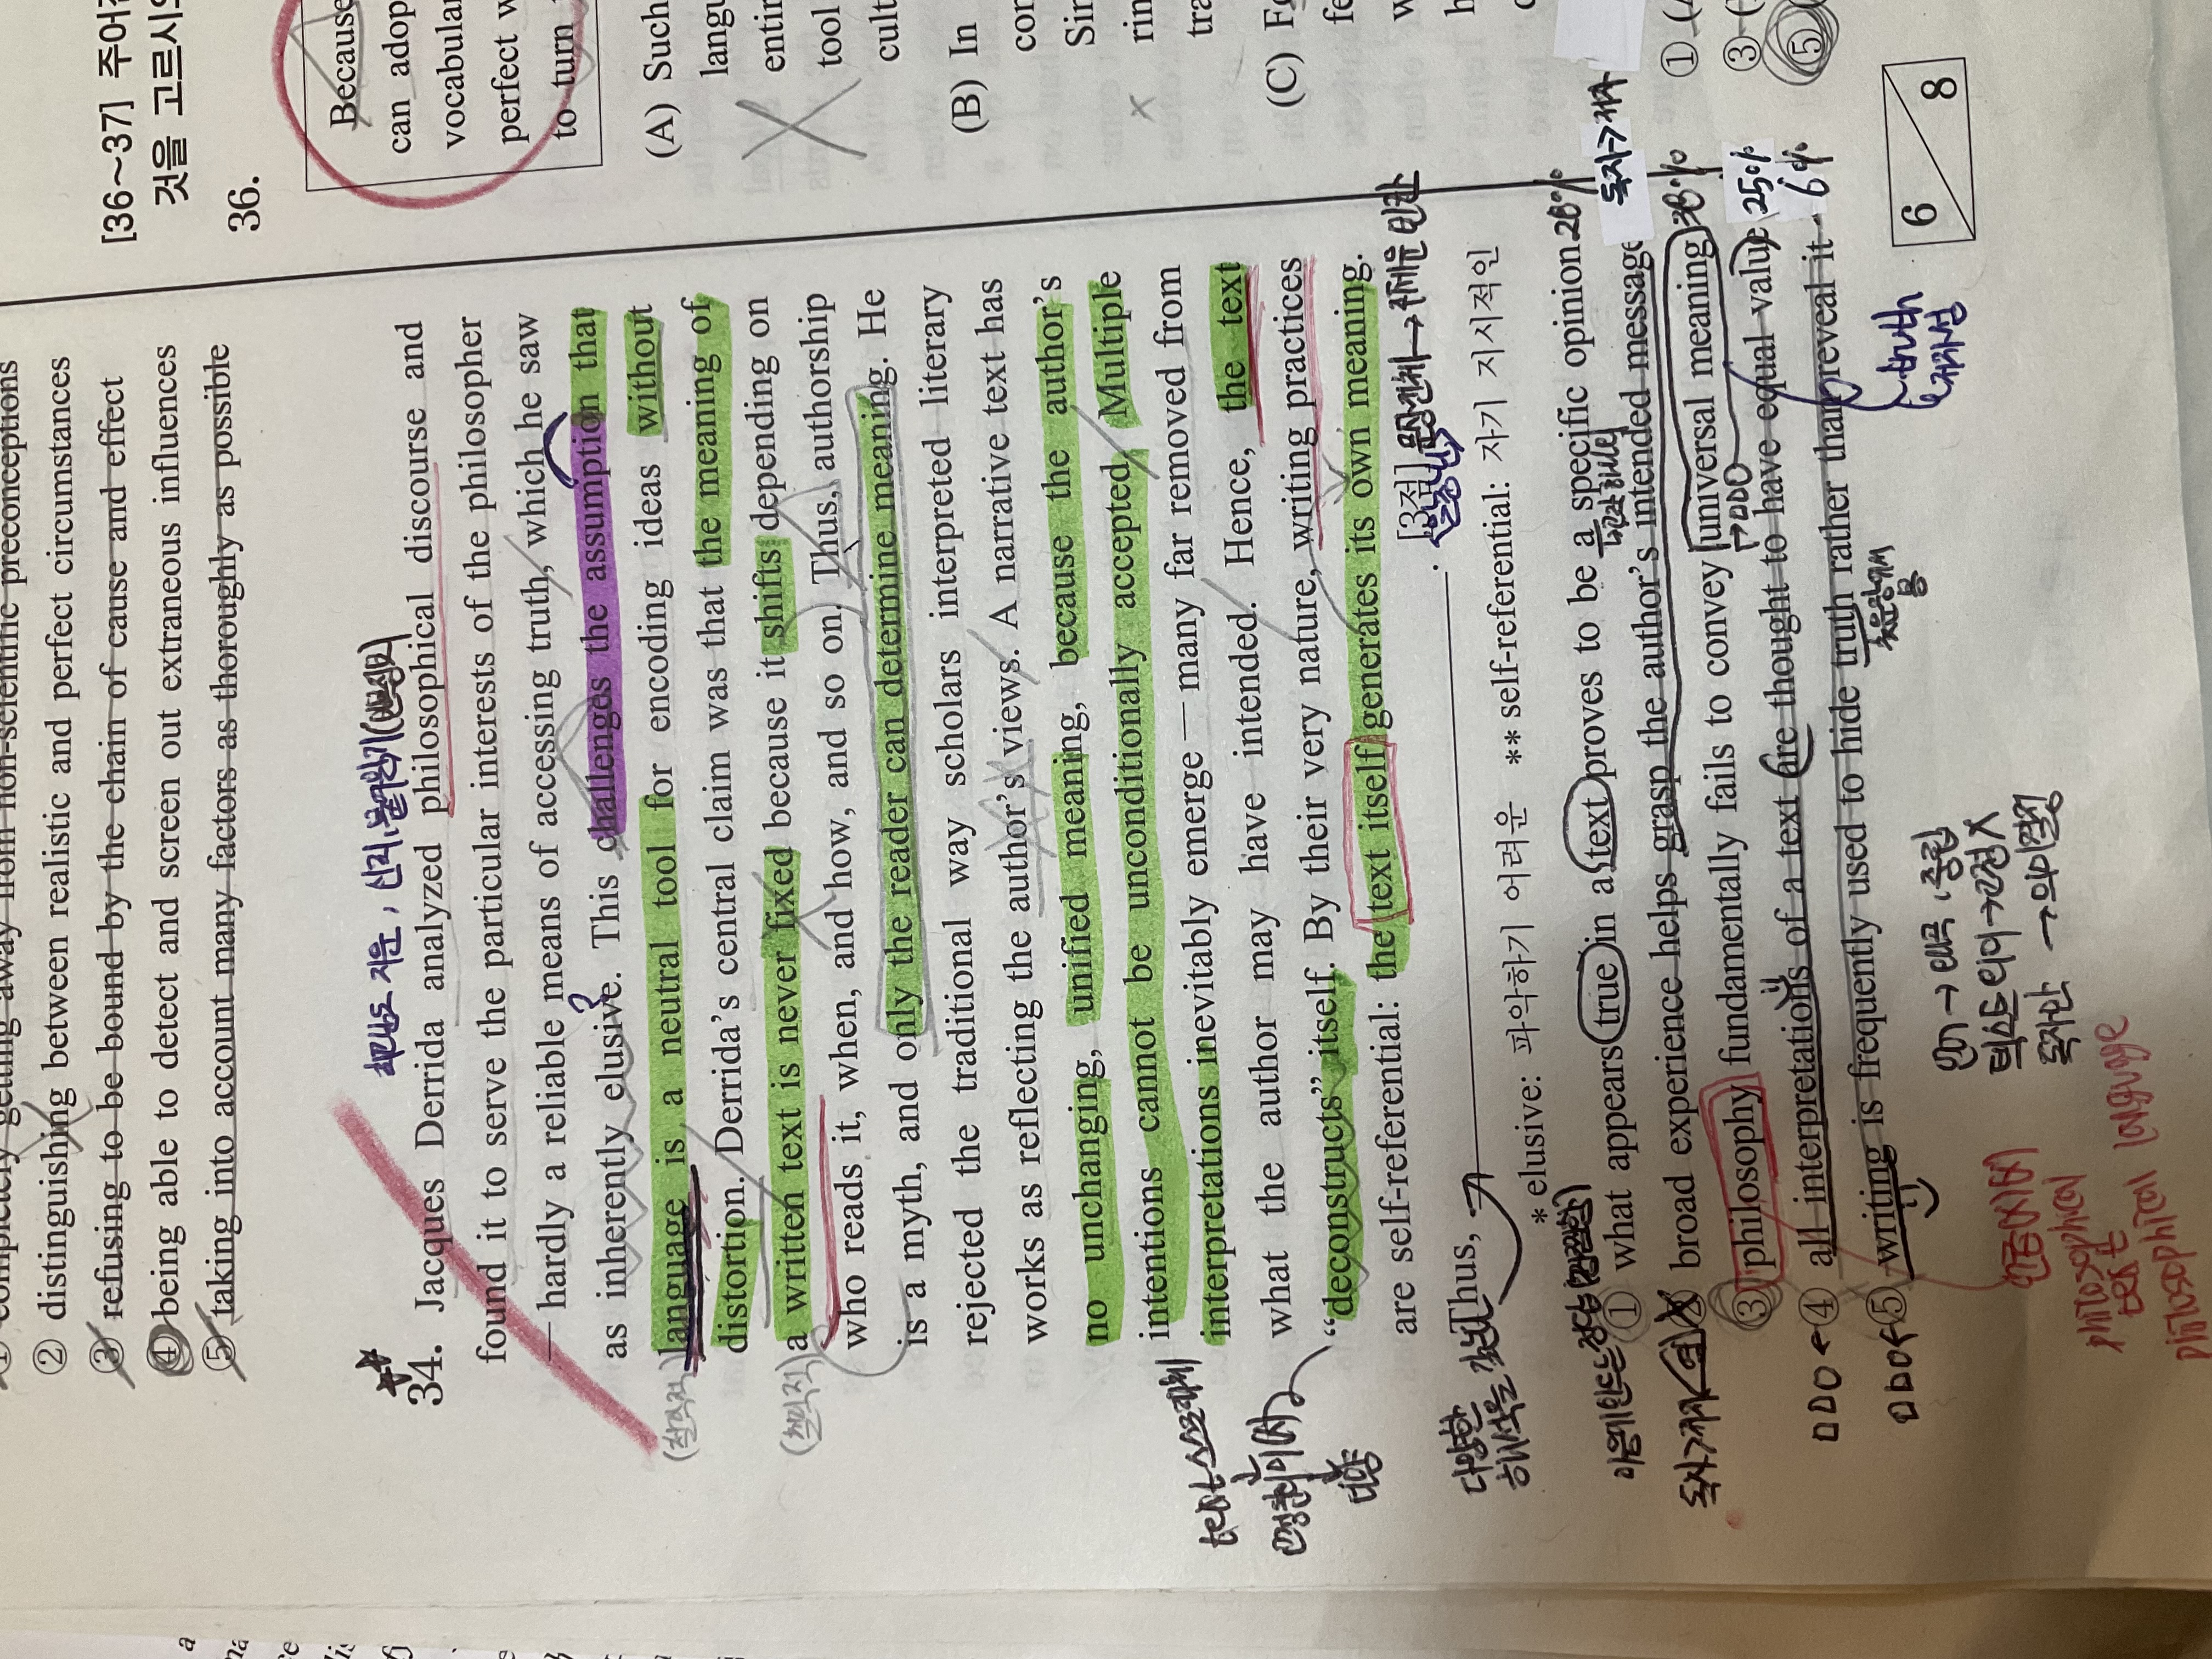 completely getting away from non-scientific preconceptions
② distinguishing between realistic and perfect circumstances
③ refusing to be bound by the chain of cause and effect
④ being able to detect and screen out extraneous influences
⑤ taking into account many factors as thoroughly as possible
34. Jacques Derrida analyzed philosophical discourse and
found it to serve the particular interests of the philosopher
— hardly a reliable means of accessing truth, which he saw
as inherently elusive. This challenges the assumption that
language is a neutral tool for encoding ideas without
distortion. Derrida's central claim was that the meaning of
a written text is never fixed because it shifts depending on
who reads it, when, and how, and so on. Thus, authorship
is a myth, and only the reader can determine meaning. He
rejected the traditional way scholars interpreted literary
works as reflecting the author's views. A narrative text has
no unchanging, unified meaning, because the author's
intentions cannot be unconditionally accepted. Multiple
interpretations inevitably emerge — many far removed from
what the author may have intended. Hence, the text
"deconstructs" itself. By their very nature, writing practices
are self-referential: the text itself generates its own meaning.
Thus,
. [3점]
* elusive: 파악하기 어려운 ** self-referential: 자기 지시적인
① what appears true in a text proves to be a specific opinion 28%
② broad experience helps grasp the author's intended message
③ philosophy fundamentally fails to convey universal meaning 38%
④ all interpretations of a text are thought to have equal value 25%
⑤ writing is frequently used to hide truth rather than reveal it 6%
다양한
해석을
독자>저자
언어 → 왜곡, 중립
텍스트 의미 → 고정X
독자만 → 의미결정
philosophical
philosophical language
6 8
[36~37] 주어진
것을 고르시오
36.
Because
can adop
vocabular
perfect w
to turn
(A) Such
langu
entir
tool
cult
(B) In
cor
Sir
rin
tra
(C) Fo
fe
①
③
⑤